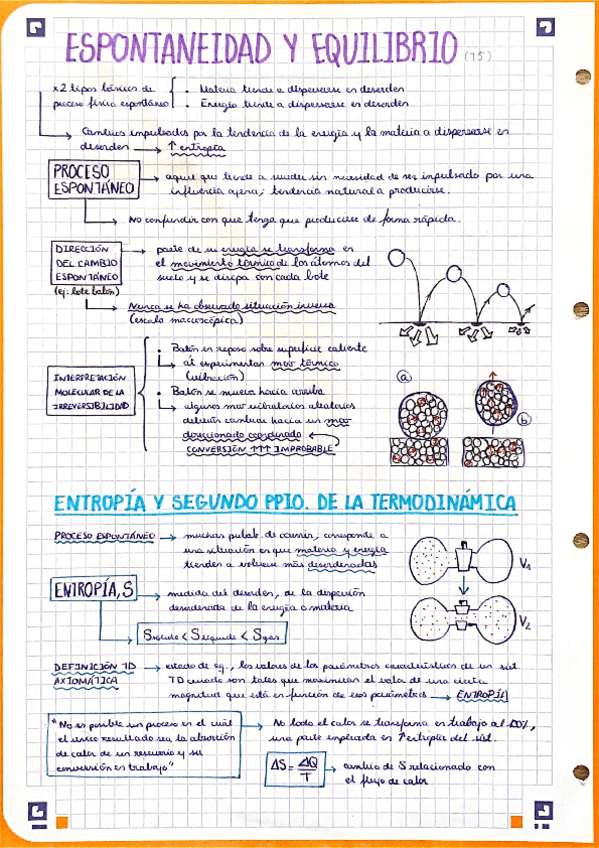 ESPONTANEIDAD Y EQUILIBRIO (T5)
x2 tipos básicos de
proceso físico espontáneo
• Materia tiende a dispersarse en desorden
• Energía tiende a dispersarse en desorden
Cambios impulsados por la tendencia de la energía y la materia a dispersarse en
desorden → ↑ entropía
PROCESO
ESPONTÁNEO
→ aquel que tiende a suceder sin necesidad de ser impulsado por una
influencia ajena; tendencia natural a producirse.
No confundir con que tenga que producirse de forma rápida.
DIRECCIÓN
DEL CAMBIO
ESPONTÁNEO
(ej: bote balón)
→ parte de su energía se transforma en
el movimiento térmico de los átomos del
suelo y se disipa con cada bote
Nunca se ha observado situación inversa
(escala macroscópica)
INTERPRETACIÓN
MOLECULAR DE LA
IRREVERSIBILIDAD
• Balón en reposo sobre superficie caliente
át experimentan mov térmico
(vibración)
• Balón se mueva hacia arriba
algunos mov vibratorios aleatorios
deberían cambiar hacia un mov
direccionado coordinado
CONVERSIÓN ↑↑↑ IMPROBABLE
a
b
ENTROPÍA Y SEGUNDO PPIO. DE LA TERMODINÁMICA
PROCESO ESPONTÁNEO → muchas probab. de ocurrir, corresponde a
una situación en que materia y energía
tienden a volverse más desordenadas
V1
V2
ENTROPÍA, S → medida del desorden, de la dispersión
desordenada de la energía o materia
Ssólido < Slíquido < Sgas
DEFINICIÓN TD
AXIOMÁTICA
→ estado de eq., los valores de los parámetros característicos de un sist.
TD cerrado son tales que maximizan el valor de una cierta
magnitud que está en función de esos parámetros → ENTROPÍA
"No es posible un proceso en el cuál
el único resultado sea la absorción
de calor de un reservorio y su
conversión en trabajo"
→ No todo el calor se transforma en trabajo al 100%,
una parte empleada en ↑ entropía del sist.
ΔS = ΔQ/T → cambio de S relacionado con
el flujo de calor